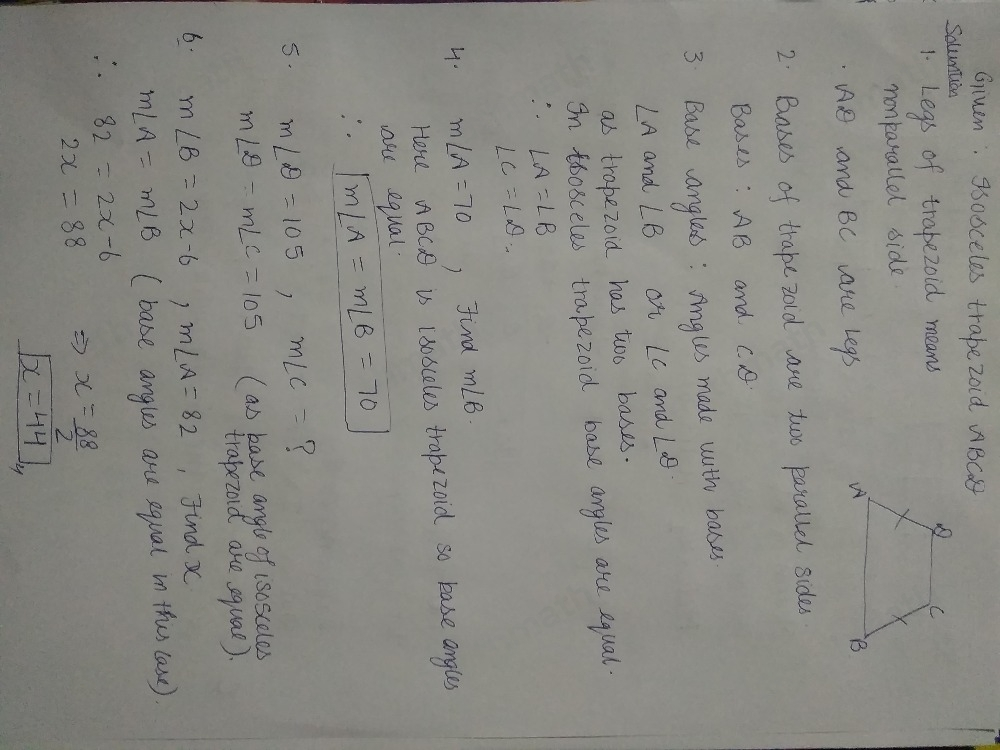 Given : Isosceles trapezoid ABCD
Solution
1. Legs of trapezoid means
nonparallel side.
. AD and BC are legs
D
C
A
B
2. Bases of trapezoid are two parallel sides.
Bases : AB and CD.
3. Base angles : Angles made with bases.
∠A and ∠B or ∠C and ∠D.
as trapezoid has two bases.
In isosceles trapezoid base angles are equal.
∴ ∠A = ∠B
∠C = ∠D.
4. m∠A = 70 , Find m∠B.
Here ABCD is isosceles trapezoid so base angles
are equal.
∴ m∠A = m∠B = 70
5. m∠D = 105 , m∠C = ?
m∠D = m∠C = 105 (as base angle of isosceles
trapezoid are equal).
6. m∠B = 2x-6 , m∠A = 82 , Find x.
m∠A = m∠B (base angles are equal in this case).
∴ 82 = 2x-6
2x = 88 ⇒ x = 88/2
x = 44